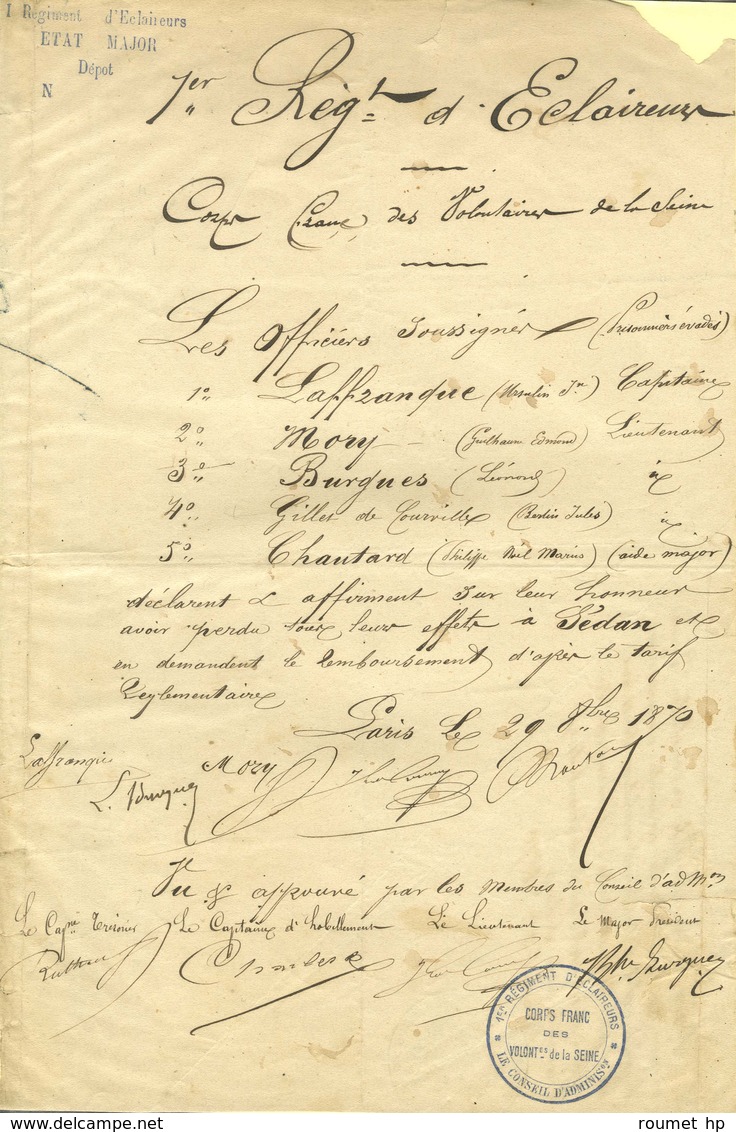 I Regiment d'Eclaireurs
ETAT MAJOR
Dépot
N
1er Régt d'Eclaireurs
Corps Franc des Volontaires de la Seine
Les Officiers soussignés (Prisonniers évadés)
1o Laffranque (Ursulin Jn) Capitaine
2o Mory (Guilhaume Edmond) Lieutenant
3o Burgues (Léonard) id
4o Gillet de Courville (Bertin Jules) id
5o Chautard (Philippe Noël Marius) (aide major)
déclarent & affirment sur leur honneur
avoir perdu tous leurs effets à Sédan et
en demandent le remboursement d'après le tarif
Reglementaire
Paris Le 29 8bre 1870
Laffranque
L. Burgues
Mory
Chautard
Vu & approuvé par les Membres du Conseil d'adMon
Le Capne Trésorier Le Capitaine d'habillement Lé Lieutenant Le Major Président
1ER RÉGIMENT D'ÉCLAIREURS
CORPS FRANC
DES
VOLONTES de la SEINE
LE CONSEIL D'ADMINISON
roumet hp